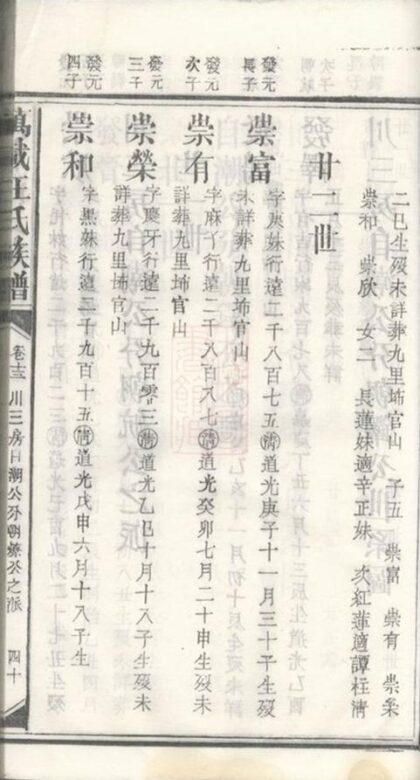 二巳生歿未詳葬九里埂官山 子五 崇富 崇有 崇榮
崇和 崇欣 女二 長蓮妹適辛正妹 次紅蓮適譚柱清
廿二世
發元長子
崇富
字庚妹行遠二千八百七五清道光庚子十一月三十子生歿
未詳葬九里埂官山
發元次子
崇有
字麻丫行遠二千八百八七清道光癸卯七月二十申生歿未
詳葬九里埂官山
發元三子
崇榮
字慶牙行遠二千九百零三清道光乙巳十月十八子生歿未
詳葬九里埂官山
發元四子
崇和
字墨妹行遠二千九百十五清道光戊申六月十八子生
萬載王氏族譜
卷十三 川三房日潮公分朝 公之派 四十